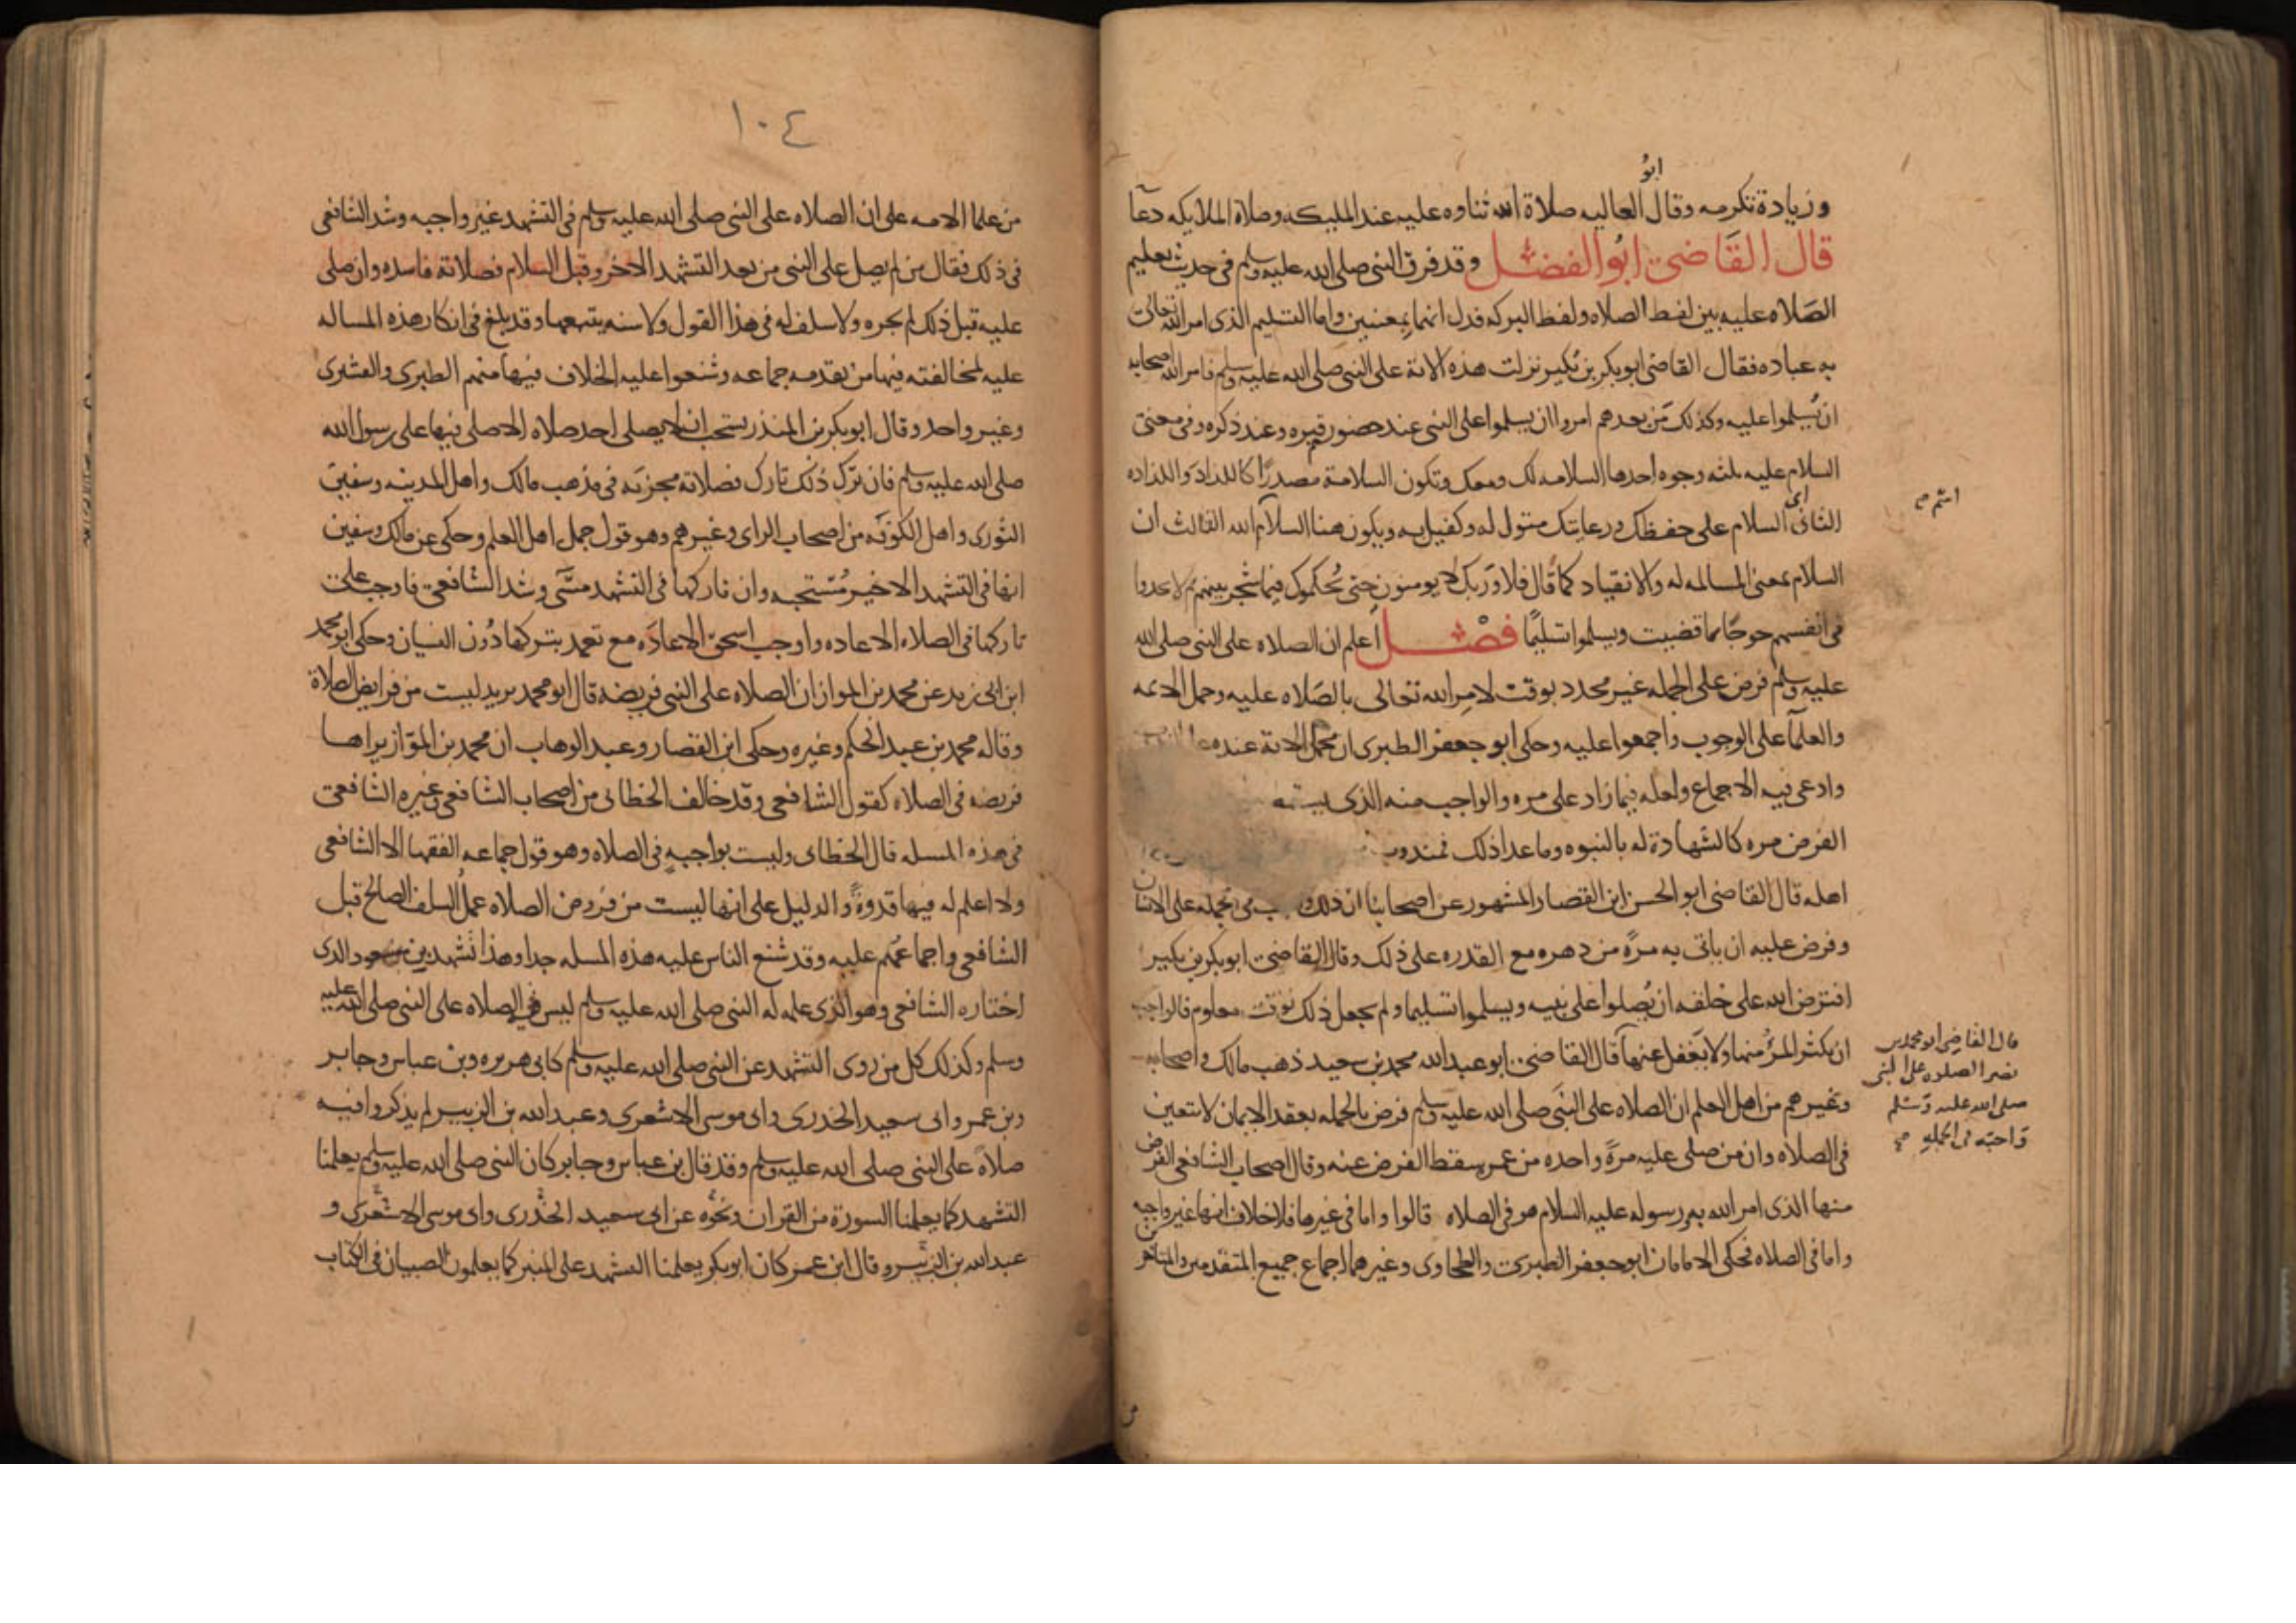 ابو
وزيادة تكرمه وقال العاليه صلاة الله ثناوه عليه عند المليكه وصلاة الملايكه دعآ
قال القاضي ابو الفضل وقد فرق النبي صلى الله عليه وسلم في حديث تعليم
الصلاه عليه بين لفظ الصلاه ولفظ البركه فدل انهما بمعنيين واما التسليم الذى امر الله تعالى
به عباده فقال القاضي ابو بكر بن بكير نزلت هذه الاية على النبي صلى الله عليه وسلم فامر الله اصحابه
ان يسلموا عليه وكذلك من بعدهم امروا ان يسلموا على النبي عند حضور قبره وعند ذكره وفي معنى
السلام عليه ثلثه وجوه احدها السلامه لك ومعك وتكون السلامة مصدرًا كاللذاذ واللذاذه
الثاني اى السلام على حفظك ورعايتك متول له وكفيل به ويكون هنا السلام الله الثالث ان
السلام بمعنى المسالمه له والانقياد كما قال فلا وربك لا يومنون حتى يحكموك فيما شجر بينهم ثم لا يجدوا
في انفسهم حرجًا مما قضيت ويسلموا تسليمًا فصل اعلم ان الصلاه على النبي صلى الله
عليه وسلم فرض على الجمله غير محدد بوقت لامر الله تعالى بالصلاه عليه وحمل الايمه
والعلمآ على الوجوب واجمعوا عليه وحكى ابو جعفر الطبرى ان محمل الاية عنده على الندب
وادعى فيه الاجماع ولعله فيما زاد على مره والواجب منه الذى يسقط
الفرض مره كالشهادة له بالنبوه وما عدا ذلك فمندوب
اهله قال القاضي ابو الحسن ابن القصار المشهور عن اصحابنا ان ذلك في الجمله على الانسان
وفرض عليه ان ياتي به مرةً من دهره مع القدره على ذلك وقال القاضي ابو بكر بن بكير
افترض الله على خلقه ان يصلوا على نبيه ويسلموا تسليما ولم يجعل ذلك لوقت معلوم فالواجب
ان يكثر المرُ منها ولا يغفل عنها قال القاضي ابو عبد الله محمد بن سعيد ذهب مالك واصحابه
وغيرهم من اهل العلم ان الصلاه على النبي صلى الله عليه وسلم فرض بالجمله بعقد الايمان لا تتعين
في الصلاه وان من صلى عليه مرةً واحده من عمره سقط الفرض عنه وقال اصحاب الشافعي الفرض
منها الذى امر الله به ورسوله عليه السلام هو في الصلاه قالوا واما في غيرها فلا خلاف انها غير واجبه
واما في الصلاه فحكى الامامان ابو جعفر الطبرى والطحاوى وغيرهما اجماع جميع المتقدمين والمتاخرين
قال القاضي ابو محمد بن
نصر الصلاه على النبي
صلى الله عليه وسلم
واجبه في الجمله
١٠٤
من علما الامه على ان الصلاه على النبي صلى الله عليه وسلم في التشهد غير واجبه وشذ الشافعى
في ذلك فقال من لم يصل على النبي من بعد التشهد الاخر وقبل السلام فصلاته فاسده وان صلى
عليه قبل ذلك لم يجزه ولا سلف له في هذا القول ولا سنه يتبعها وقد بلغ في انكار هذه المساله
عليه لمخالفته فيها من تقدمه جماعه وشنعوا عليه الخلاف فيها منهم الطبرى والقشيرى
وغير واحد وقال ابو بكر بن المنذر يستحب ان لا يصلى احد صلاه الا صلى فيها على رسول الله
صلى الله عليه وسلم فان ترك ذلك تارك فصلاته مجزيه في مذهب مالك واهل المدينه وسفين
الثورى واهل الكوفه من اصحاب الراى وغيرهم وهو قول جمل اهل العلم وحكى عن مالك وسفين
انها في التشهد الاخير مُستحبه وان تاركها في التشهد مسى وشذ الشافعي فاوجب على
تاركها في الصلاه الاعاده واوجب اسحق الاعاده مع تعمد تركها دون النسيان وحكى ابو محمد
ابن ابي زيد عن محمد بن المواز ان الصلاه على النبي فريضه قال ابو محمد يريد ليست من فرايض الصلاة
وقاله محمد بن عبد الحكم وغيره وحكى ابن القصار وعبد الوهاب ان محمد بن المواز يراها
فريضه في الصلاه كقول الشافعي وقد خالف الخطابى من اصحاب الشافعي وغيره الشافعي
في هذه المسله قال الخطابى وليست بواجبه في الصلاه وهو قول جماعه الفقها الا الشافعى
ولا اعلم له فيها قدوةً والدليل على انها ليست من فروض الصلاه عمل السلف الصالح قبل
الشافعى واجماعهم عليه وقد شنع الناس عليه هذه المسله جدا وهذا تشهد بن مسعود الذى
اختاره الشافعي وهو الذى علمه له النبي صلى الله عليه وسلم ليس فيه الصلاه على النبي صلى الله عليه
وسلم وكذلك كل من روى التشهد عن النبي صلى الله عليه وسلم كابى هريره وبن عباس وجابر
وبن عمر وابى سعيد الخدرى وابى موسى الاشعرى وعبد الله بن الزبير لم يذكروا فيه
صلاة على النبي صلى الله عليه وسلم وقد قال بن عباس وجابر كان النبي صلى الله عليه وسلم يعلمنا
التشهد كما يعلمنا السورة من القران ونحوه عن ابى سعيد الخدرى وابى موسى الاشعرى و
عبد الله بن الزبير وقال ابن عمر كان ابو بكر يعلمنا التشهد على المنبر كما يعلمون الصبيان في الكتاب